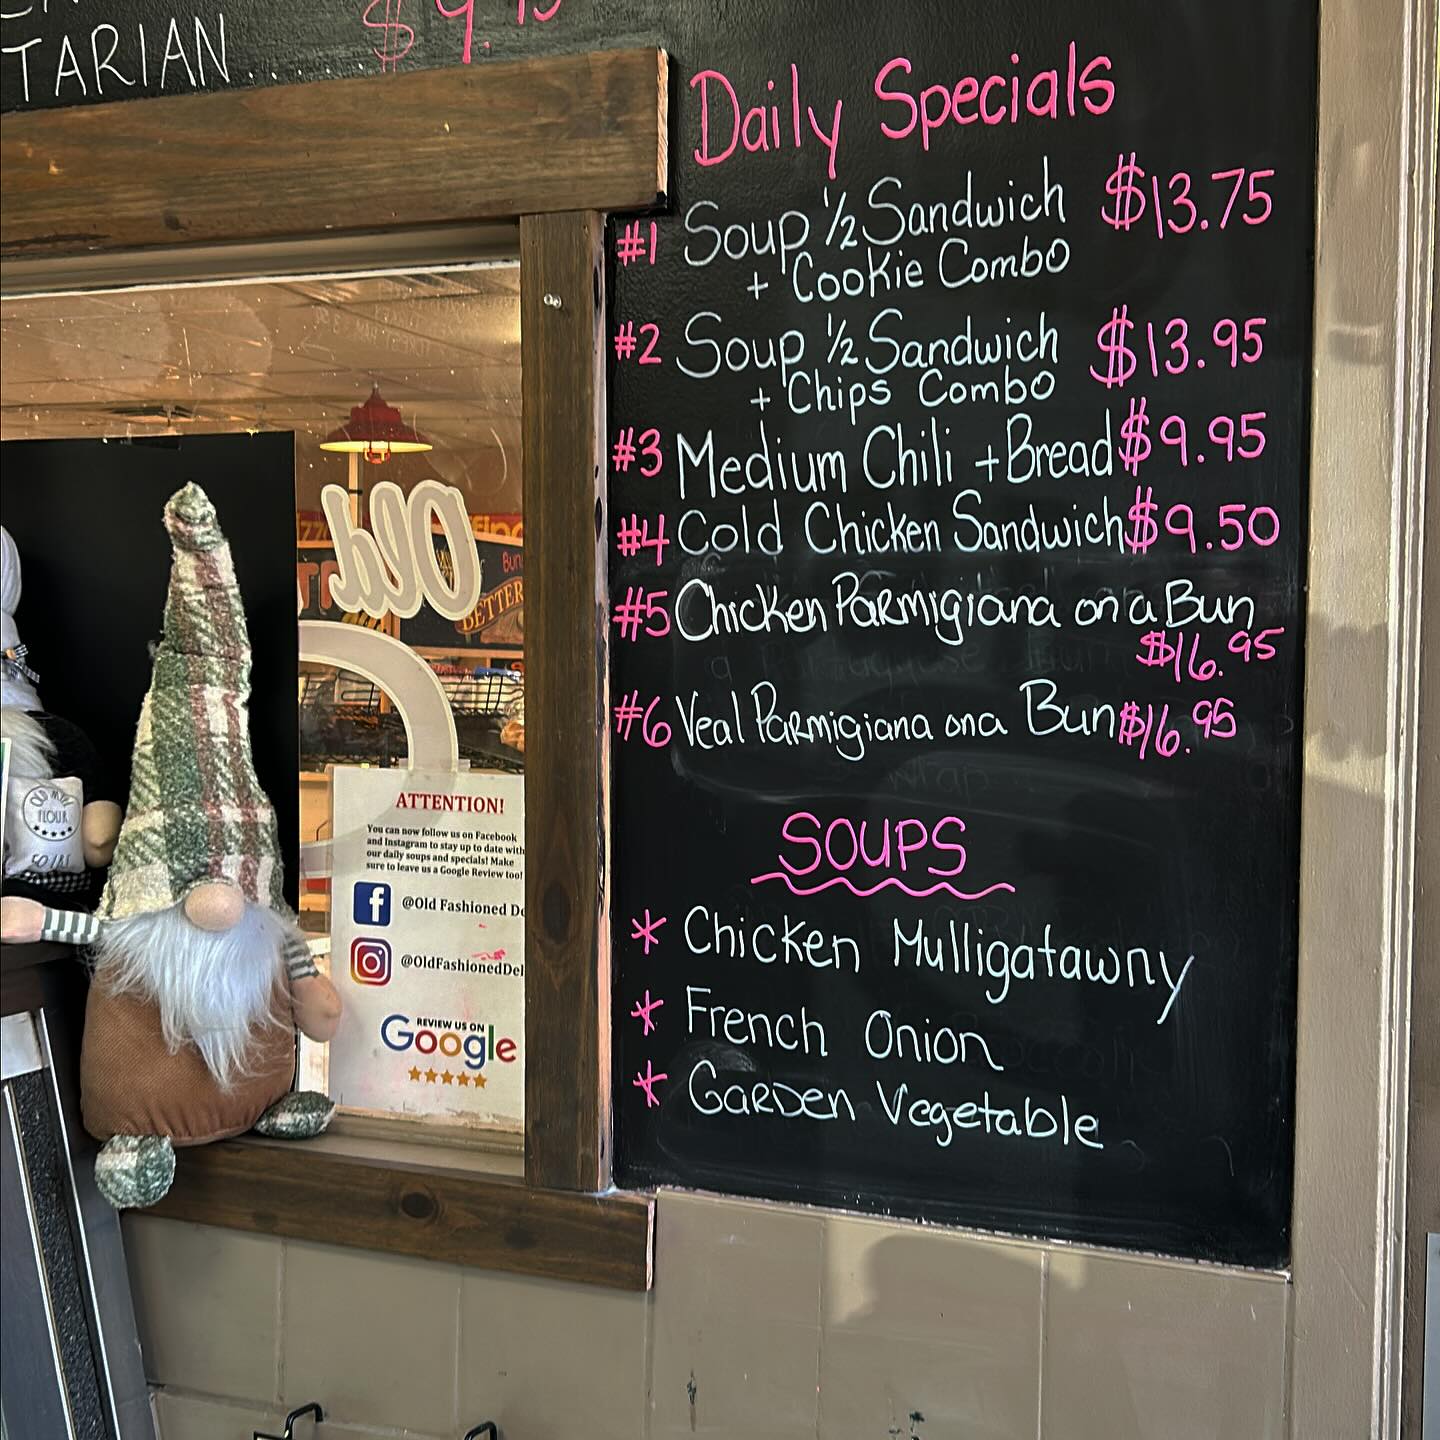 TARIAN...... $9.95
Daily Specials
#1 Soup ½ Sandwich $13.75
+ Cookie Combo
#2 Soup ½ Sandwich $13.95
+ Chips Combo
#3 Medium Chili + Bread $9.95
#4 Cold Chicken Sandwich $9.50
#5 Chicken Parmigiana on a Bun
$16.95
#6 Veal Parmigiana on a Bun $16.95
SOUPS
* Chicken Mulligatawny
* French Onion
* Garden Vegetable
Old
BETTER
OLD MILL
FLOUR
50 LBS
ATTENTION!
You can now follow us on Facebook
and Instagram to stay up to date with
our daily soups and specials! Make
sure to leave us a Google Review too!
@Old Fashioned De
@OldFashionedDel
REVIEW US ON
Google